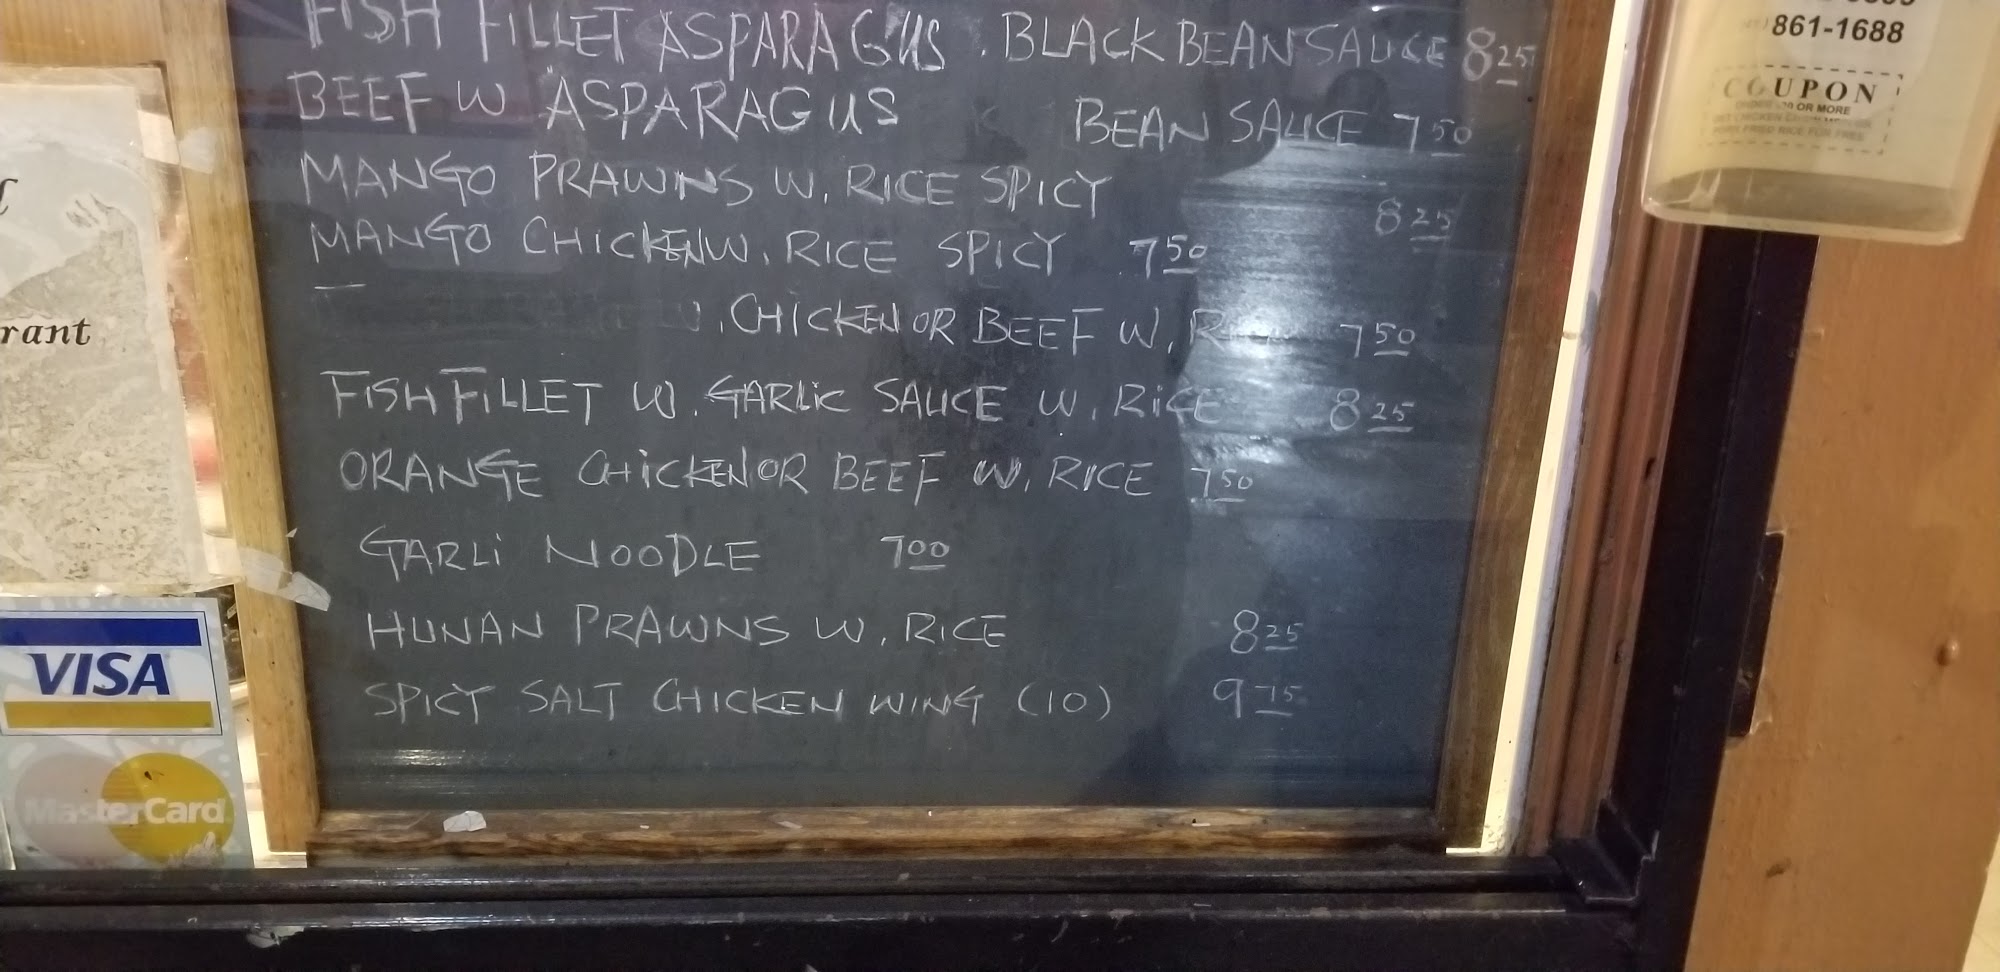 FISH FILLET ASPARAGUS . BLACK BEAN SAUCE 8 25
BEEF W ASPARAGUS BEAN SAUCE 7 50
MANGO PRAWNS W, RICE SPICY 8 25
MANGO CHICKEN W, RICE SPICY 7 50
, CHICKEN OR BEEF W, 7 50
FISH FILLET W. GARLIC SAUCE W, RICE 8 25
ORANGE CHICKEN OR BEEF W, RICE 7 50
GARLI NOODLE 7 00
HUNAN PRAWNS W, RICE 8 25
SPICY SALT CHICKEN WING (10) 9 75
861-1688
COUPON
OR MORE
rant
VISA
MasterCard